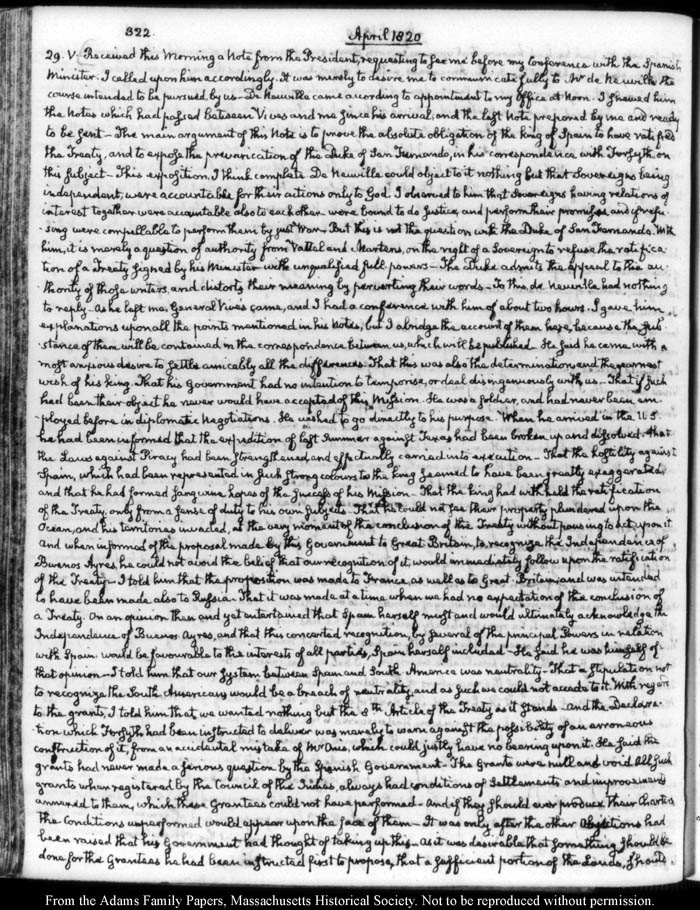 322.
April 1820
29. V. Received this Morning a Note from the President, requesting to see me before my Conference with the Spanish
Minister. I called upon him accordingly. It was merely to desire me to communicate fully to Mr de Neuville the
course intended to be pursued by us. De Neuville came according to appointment to my Office at Noon. I shewed him
the Notes which had passed between Vives and me since his arrival, and the last Note prepared by me and ready
to be sent — The main argument of this Note is to prove the absolute obligation of the king of Spain to have ratified
the Treaty, and to expose the prevarication of the Duke of San Fernando, in his correspondence with Forsyth on
this subject — This exposition, I think complete. De Neuville could object to it nothing but that Sovereigns being
independent, were accountable for their actions only to God. I observed to him that Sovereigns having relations of
interest together were accountable also to each other were bound to do Justice, and perform their promises, and if refu-
sing were compellable to perform them by just War. But this is not the question with the Duke of San Fernando. With
him, it is merely a question of authority from Vattel and Martens, on the right of a Sovereign to refuse the ratifica-
tion of a Treaty signed by his Minister with unqualified full powers — The Duke admits the appeal to the au-
thority of those writers, and distorts their meaning by perverting their words — To this de Neuville had nothing
to reply. As he left me, General Vives came, and I had a conference with him of about two hours. I gave him
explanations upon all the points mentioned in his Notes, but I abridge the account of them here, because the sub-
stance of them will be contained in the correspondence between us, which will be published. He said he came with a
most anxious desire to settle amicably all the differences. That this was also the determination and the earnest
wish of his king. That his Government had no intention to temporise, or deal disingenuously with us — That if such
had been their object he never would have accepted of this Mission. He was a soldier, and had never been em-
ployed before in diplomatic Negotiations. He wished to go directly to his purpose. When he arrived in the U.S.
he had been informed that the expedition of last Summer against Texas had been broken up and dissolved. That
the Laws against Piracy had been strengthened, and effectually carried into execution — That the hostility against
Spain, which had been represented in such strong colours to the king seemed to have been greatly exaggerated,
and that he had formed sanguine hopes of the success of his Mission — That the king had withheld the ratification
of the Treaty, only from a sense of duty to his own subjects. That he could not see their property plundered upon the
Ocean, and his territories invaded, at the very moment of the conclusion of the Treaty without pausing to act upon it
and when informed of the proposal made by this Government to Great Britain, to recognize the Independence of
Buenos Ayres, he could not avoid the belief that our recognition of it, would immediately follow upon the ratification
of the Treaty — I told him that the proposition was made to France, as well as to Great Britain, and was intended
to have been made also to Russia — That it was made at a time when we had no expectation of the conclusion of
a Treaty. On an opinion then and yet entertained that Spain herself must and would ultimately acknowledge the
Independence of Buenos Ayres, and that this concerted recognition, by several of the principal Powers in relation
with Spain would be favourable to the interests of all parties, Spain herself included — He said he was himself of
that opinion — I told him that our System between Spain and South America was neutrality — That a stipulation not
to recognize the South Americans would be a breach of neutrality, and as such we could not accede to it. With regard
to the grants, I told him that we wanted nothing but the 8th Article of the Treaty as it stands — And the Declara-
tion which Forsyth had been instructed to deliver was merely to warn against the possibility of an erroneous
construction of it, from an accidental mistake of Mr Onis, which could justly have no bearing upon it. He said the
grants had never made a serious question by the Spanish Government — The Grants were null and void All such
grants when registered by the Council of the Indies, always had conditions of settlements and improvements
annexed to them, which these Grantees could not have performed — And if they should ever produce their Charters
the Conditions unperformed would appear upon the face of them — It was only after the other Objections had
been raised that his Government had thought of taking up this — As it was desirable that something should be
done for the Grantees he had been instructed first to propose, that a sufficient portion of the Lands, should
From the Adams Family Papers, Massachusetts Historical Society. Not to be reproduced without permission.